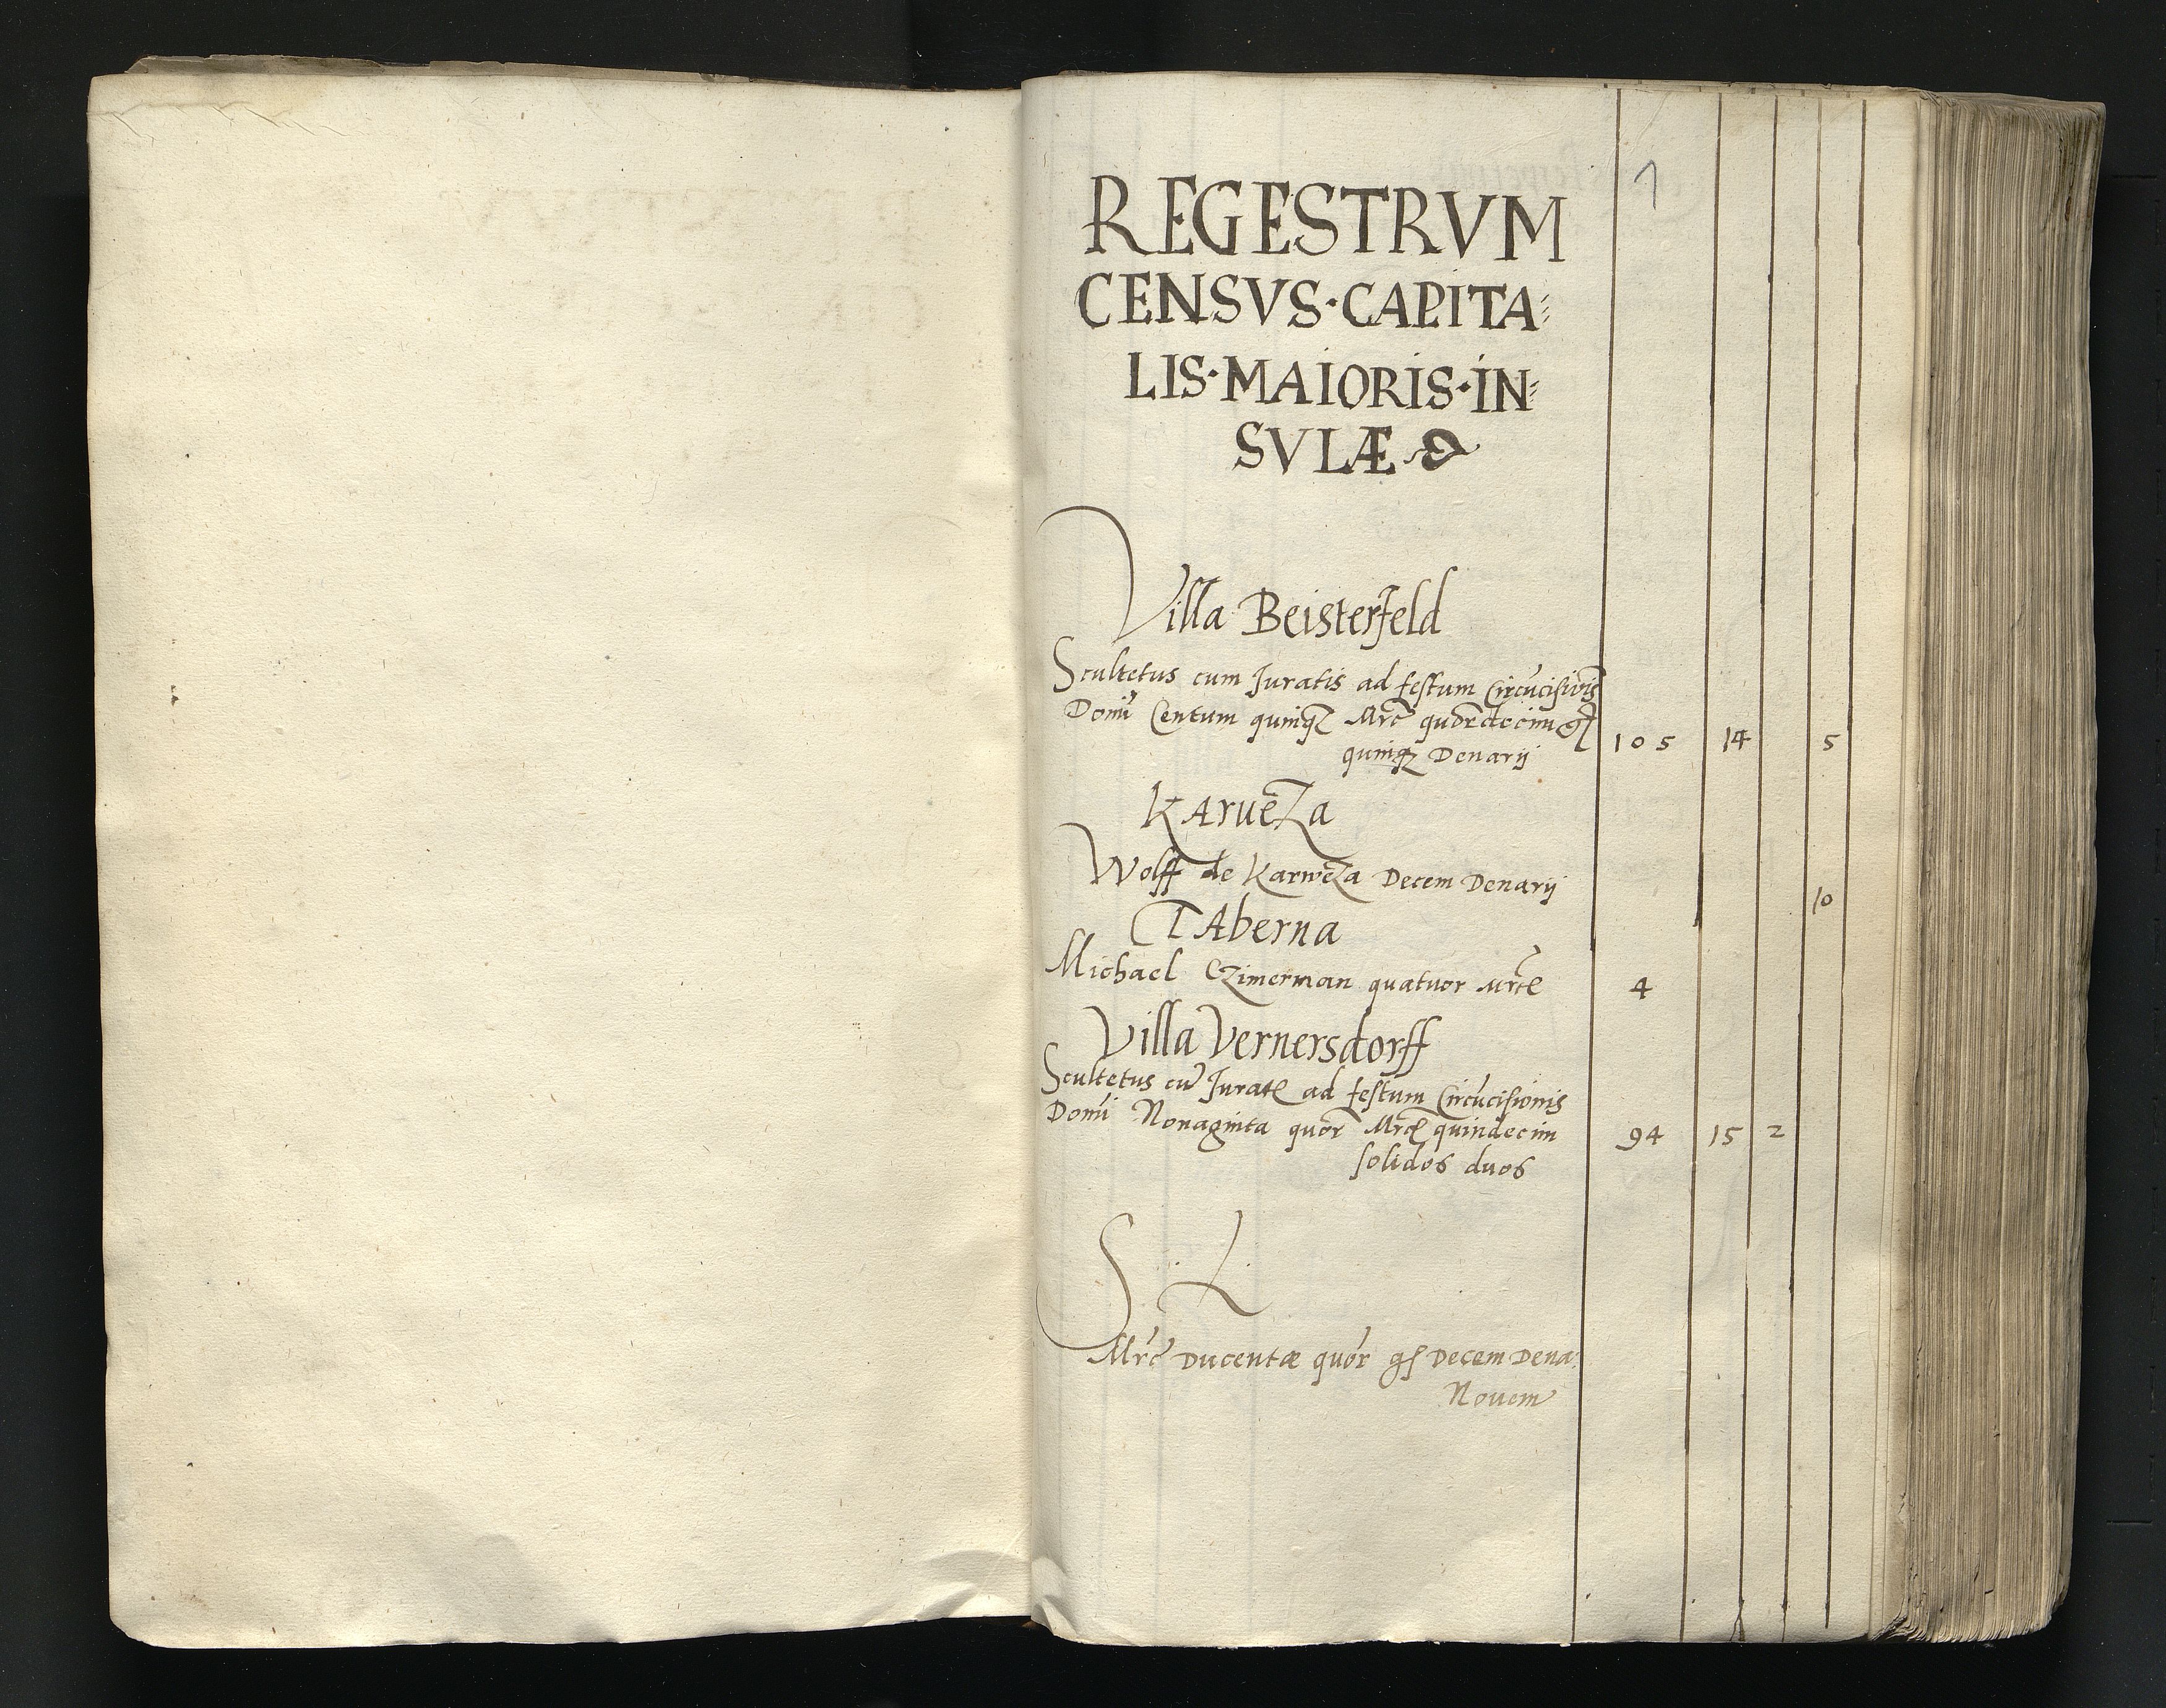 1
REGESTRVM
CENSVS·CAPITA⸗
LIS·MAIORIS·IN⸗
SVLÆ
Villa Beisterfeld
Scultetus cum Juratis ad festum Circūcisiōis
Domī Centum quinqꝫ Mrc̄ quōrdecim gſ
105 14 5
quinqꝫ Denarij
KArueZa
Wolff de KarweZa Decem Denarij
10
TAberna
Michael CZimerman quatuor mrc̄e
4
Villa Vernersdorff
Scultetus cū Juratꝭ ad festum Circūcisionis
Domī Nonaginta quōr Mrcꝭ quindecim
94 15 2
solidos duos
S. L.
Mrc̄ Ducentæ quōr gſ Decem Dena:
Novem